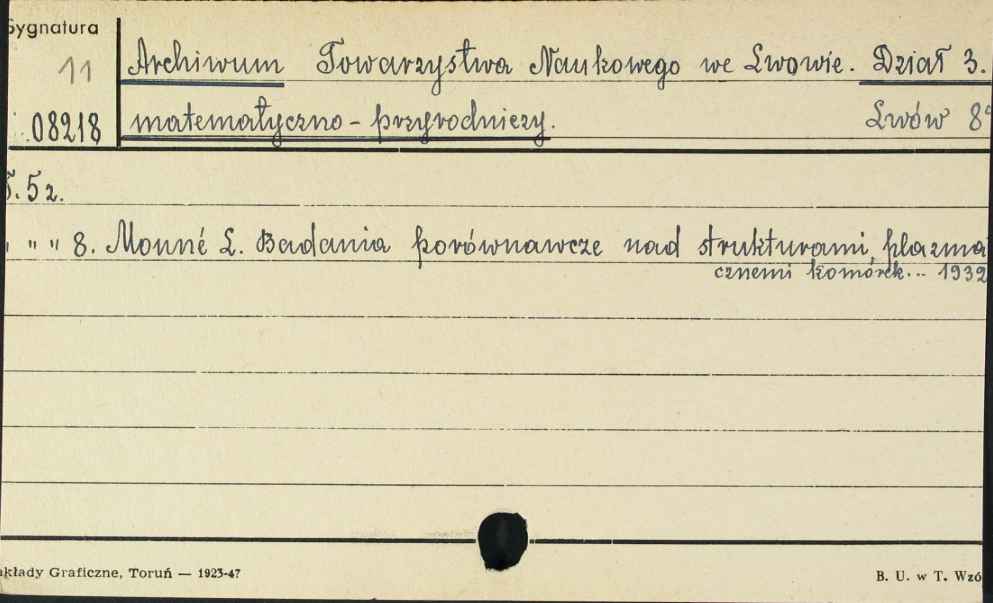 Sygnatura
11
Archiwum Towarzystwa Naukowego we Lwowie. Dział 3.
08218 matematyczno-przyrodniczy. Lwów 8°
T. 5 z.
" " " 8. Monné L. Badania porównawcze nad strukturami plazma
cznemi komórek... 1932
akłady Graficzne, Toruń — 1923-47
B. U. w T. Wzó